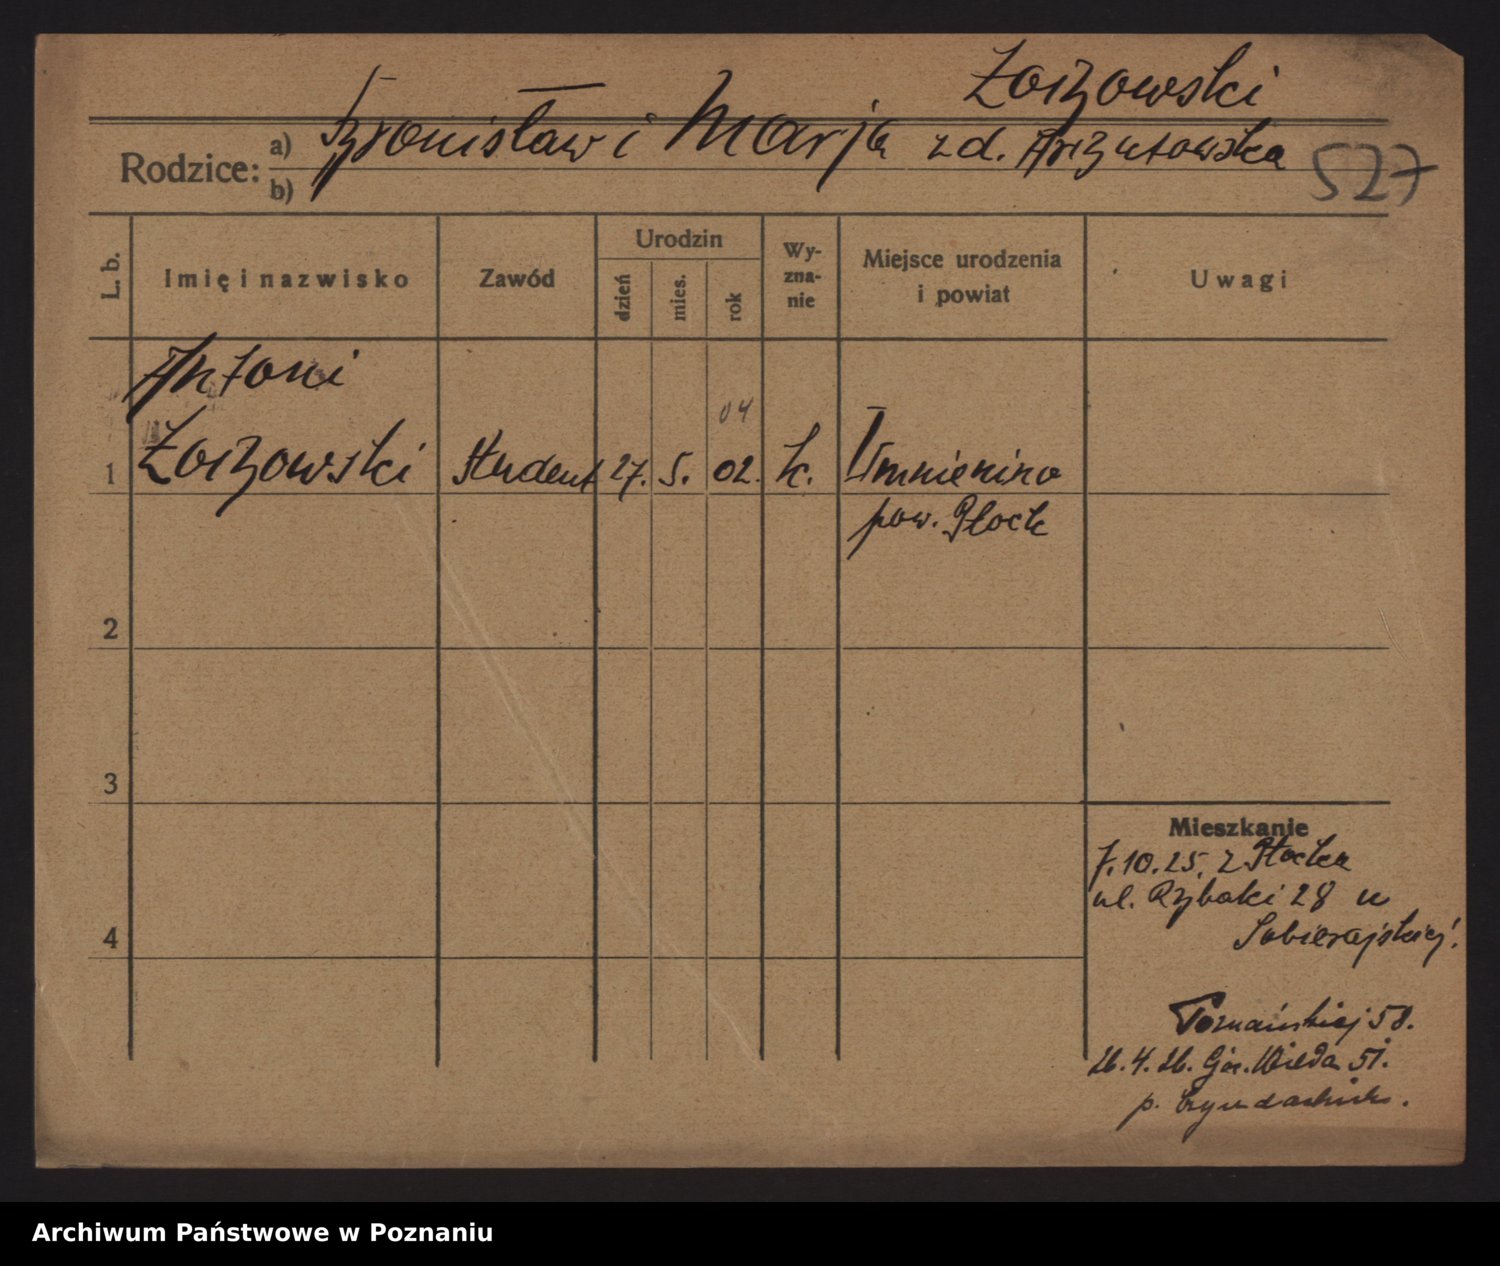 Żorzowski
Rodzice: a) Bronisław i Marja z d. Arżutowska
b)
527
L. b.
Imię i nazwisko
Zawód
Urodzin
dzień
mies.
rok
Wy-
zna-
nie
Miejsce urodzenia
i powiat
Uwagi
Antoni
04
1 Żorzowski Student 27. 5. 02. k. Umnienino
pow. Płock
2
3
4
Mieszkanie
7.10.25. z Płocka
ul. Rybaki 28 u
Sobierajskiej.
Poznańskiej 58.
26.4.26. Gór. Wilda 51.
p.
Archiwum Państwowe w Poznaniu